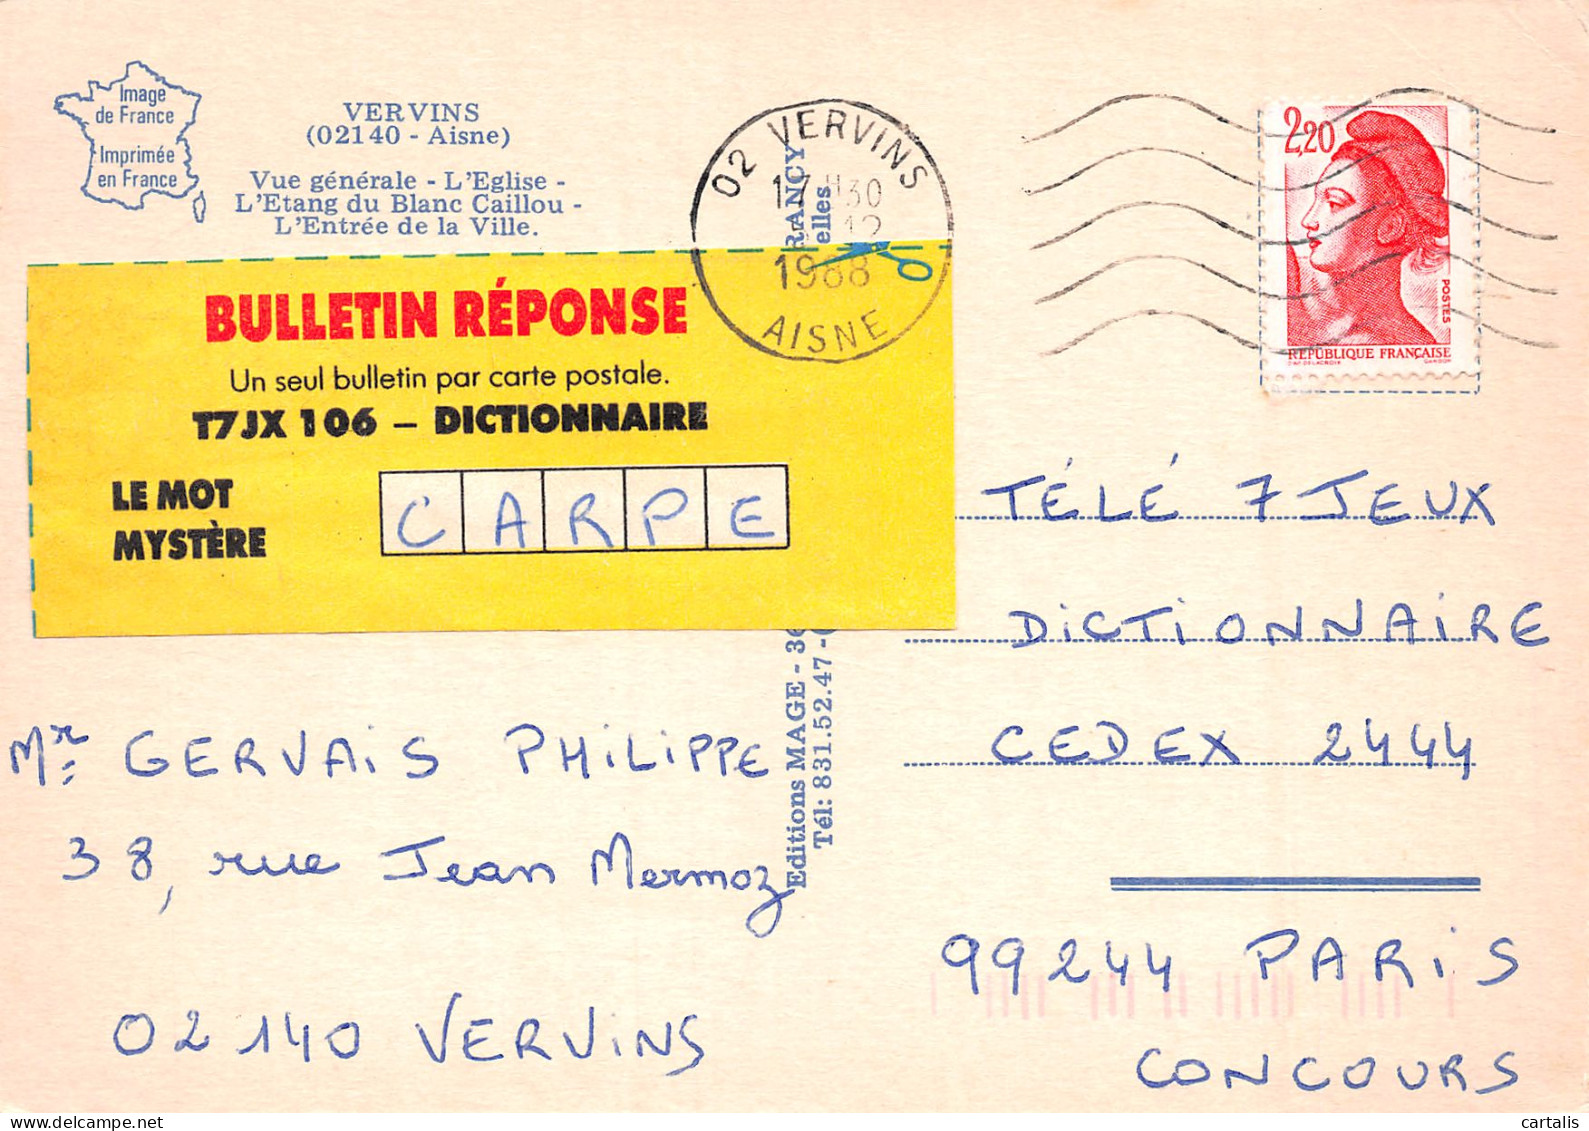 Image
de France
Imprimée
en France
VERVINS
(02140 - Aisne)
Vue générale - L'Eglise -
L'Etang du Blanc Caillou -
L'Entrée de la Ville.
02 VERVINS
17 H 30
12
1988
AISNE
RANCY
elles
2,20
POSTES
REPUBLIQUE FRANÇAISE
BULLETIN RÉPONSE
Un seul bulletin par carte postale.
T7JX 106 – DICTIONNAIRE
LE MOT
MYSTÈRE
CARPE
Editions MAGE - 36
Tél: 831.52.47 -
Mr GERVAIS PHILIPPE
38, rue Jean Mermoz
02140 VERVINS
TÉLÉ 7 JEUX
DICTIONNAIRE
CEDEX 2444
99244 PARIS
CONCOURS
cartalis